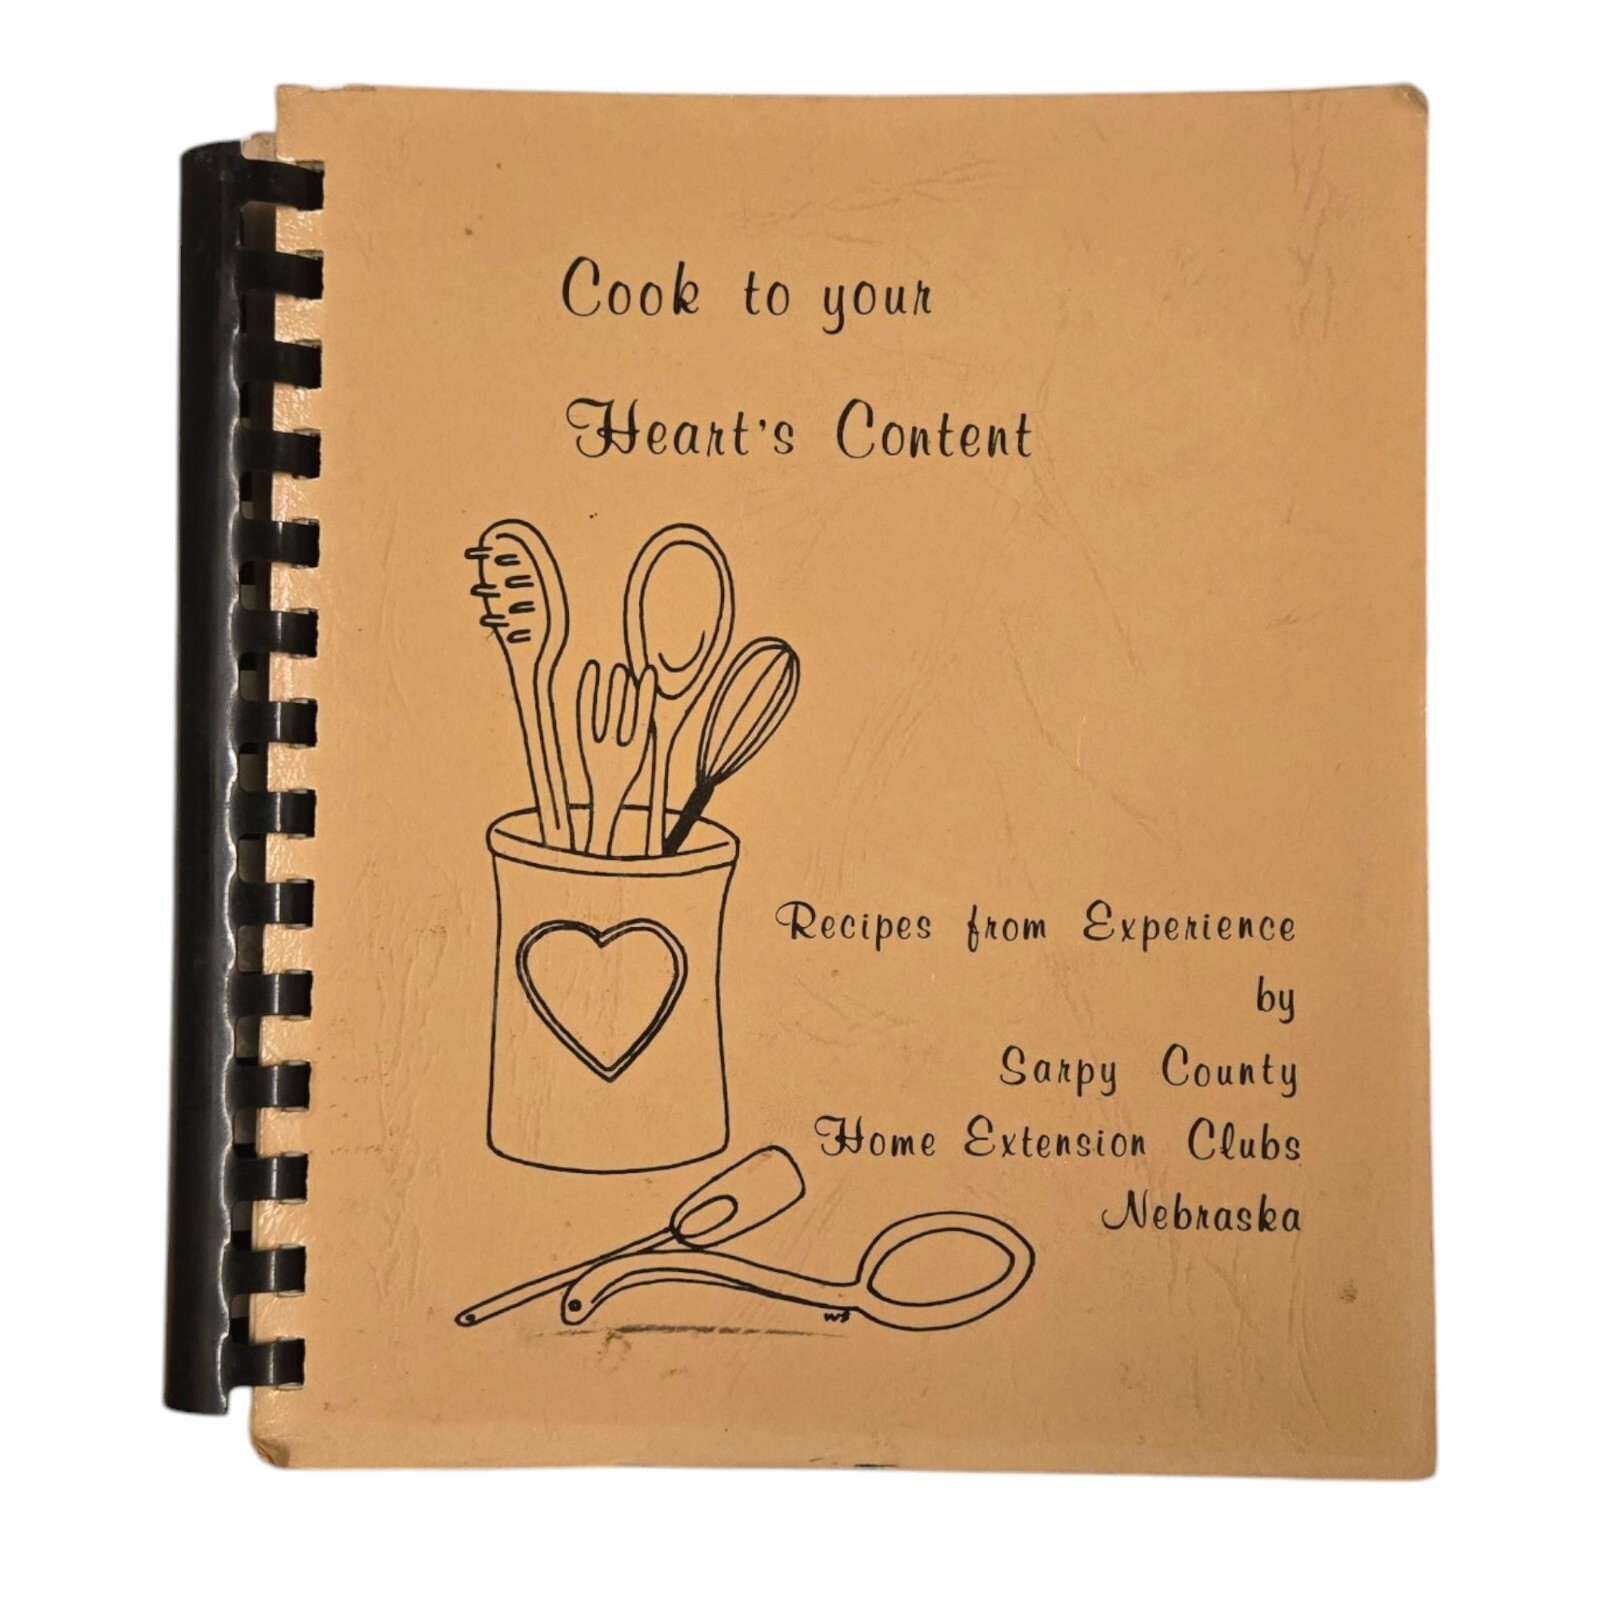 Cook to your
Heart's Content
Recipes from Experience
by
Sarpy County
Home Extension Clubs
Nebraska